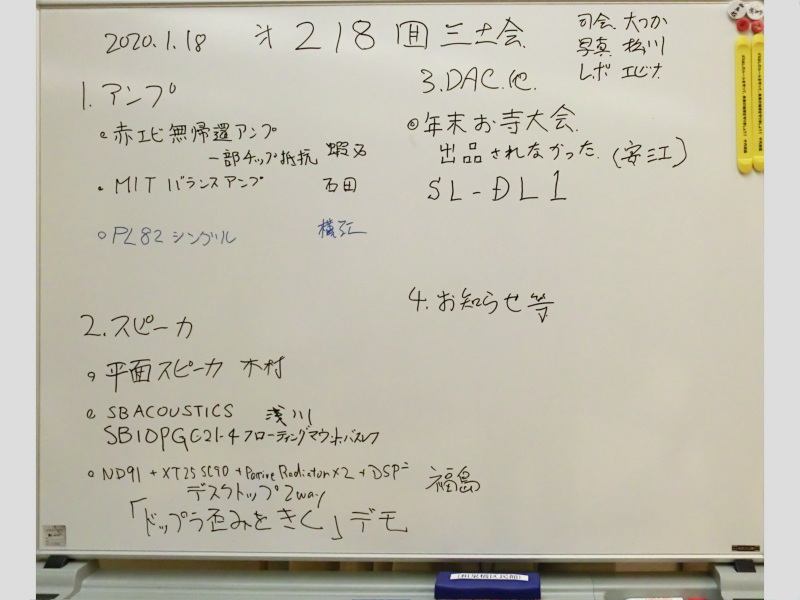 2020.1.18 第218回 三土会
司会 大つか
写真 松川
レポ エビナ
1. アンプ
赤エビ無帰還アンプ
一部チップ抵抗 蝦名
MIT バランスアンプ 石田
PL82 シングル 横江
2. スピーカ
平面スピーカ 木村
SB ACOUSTICS 浅川
SB10PGC21-4 フローティングマウント・バスレフ
ND91 + XT25SC90 + Passive Radiator×2 + DSP=
デスクトップ2way 福島
「ドップラ歪みをきく」デモ
3. DAC.他.
◎年末お寺大会.
出品されなかった. (安江)
SL-DL1
4. お知らせ等